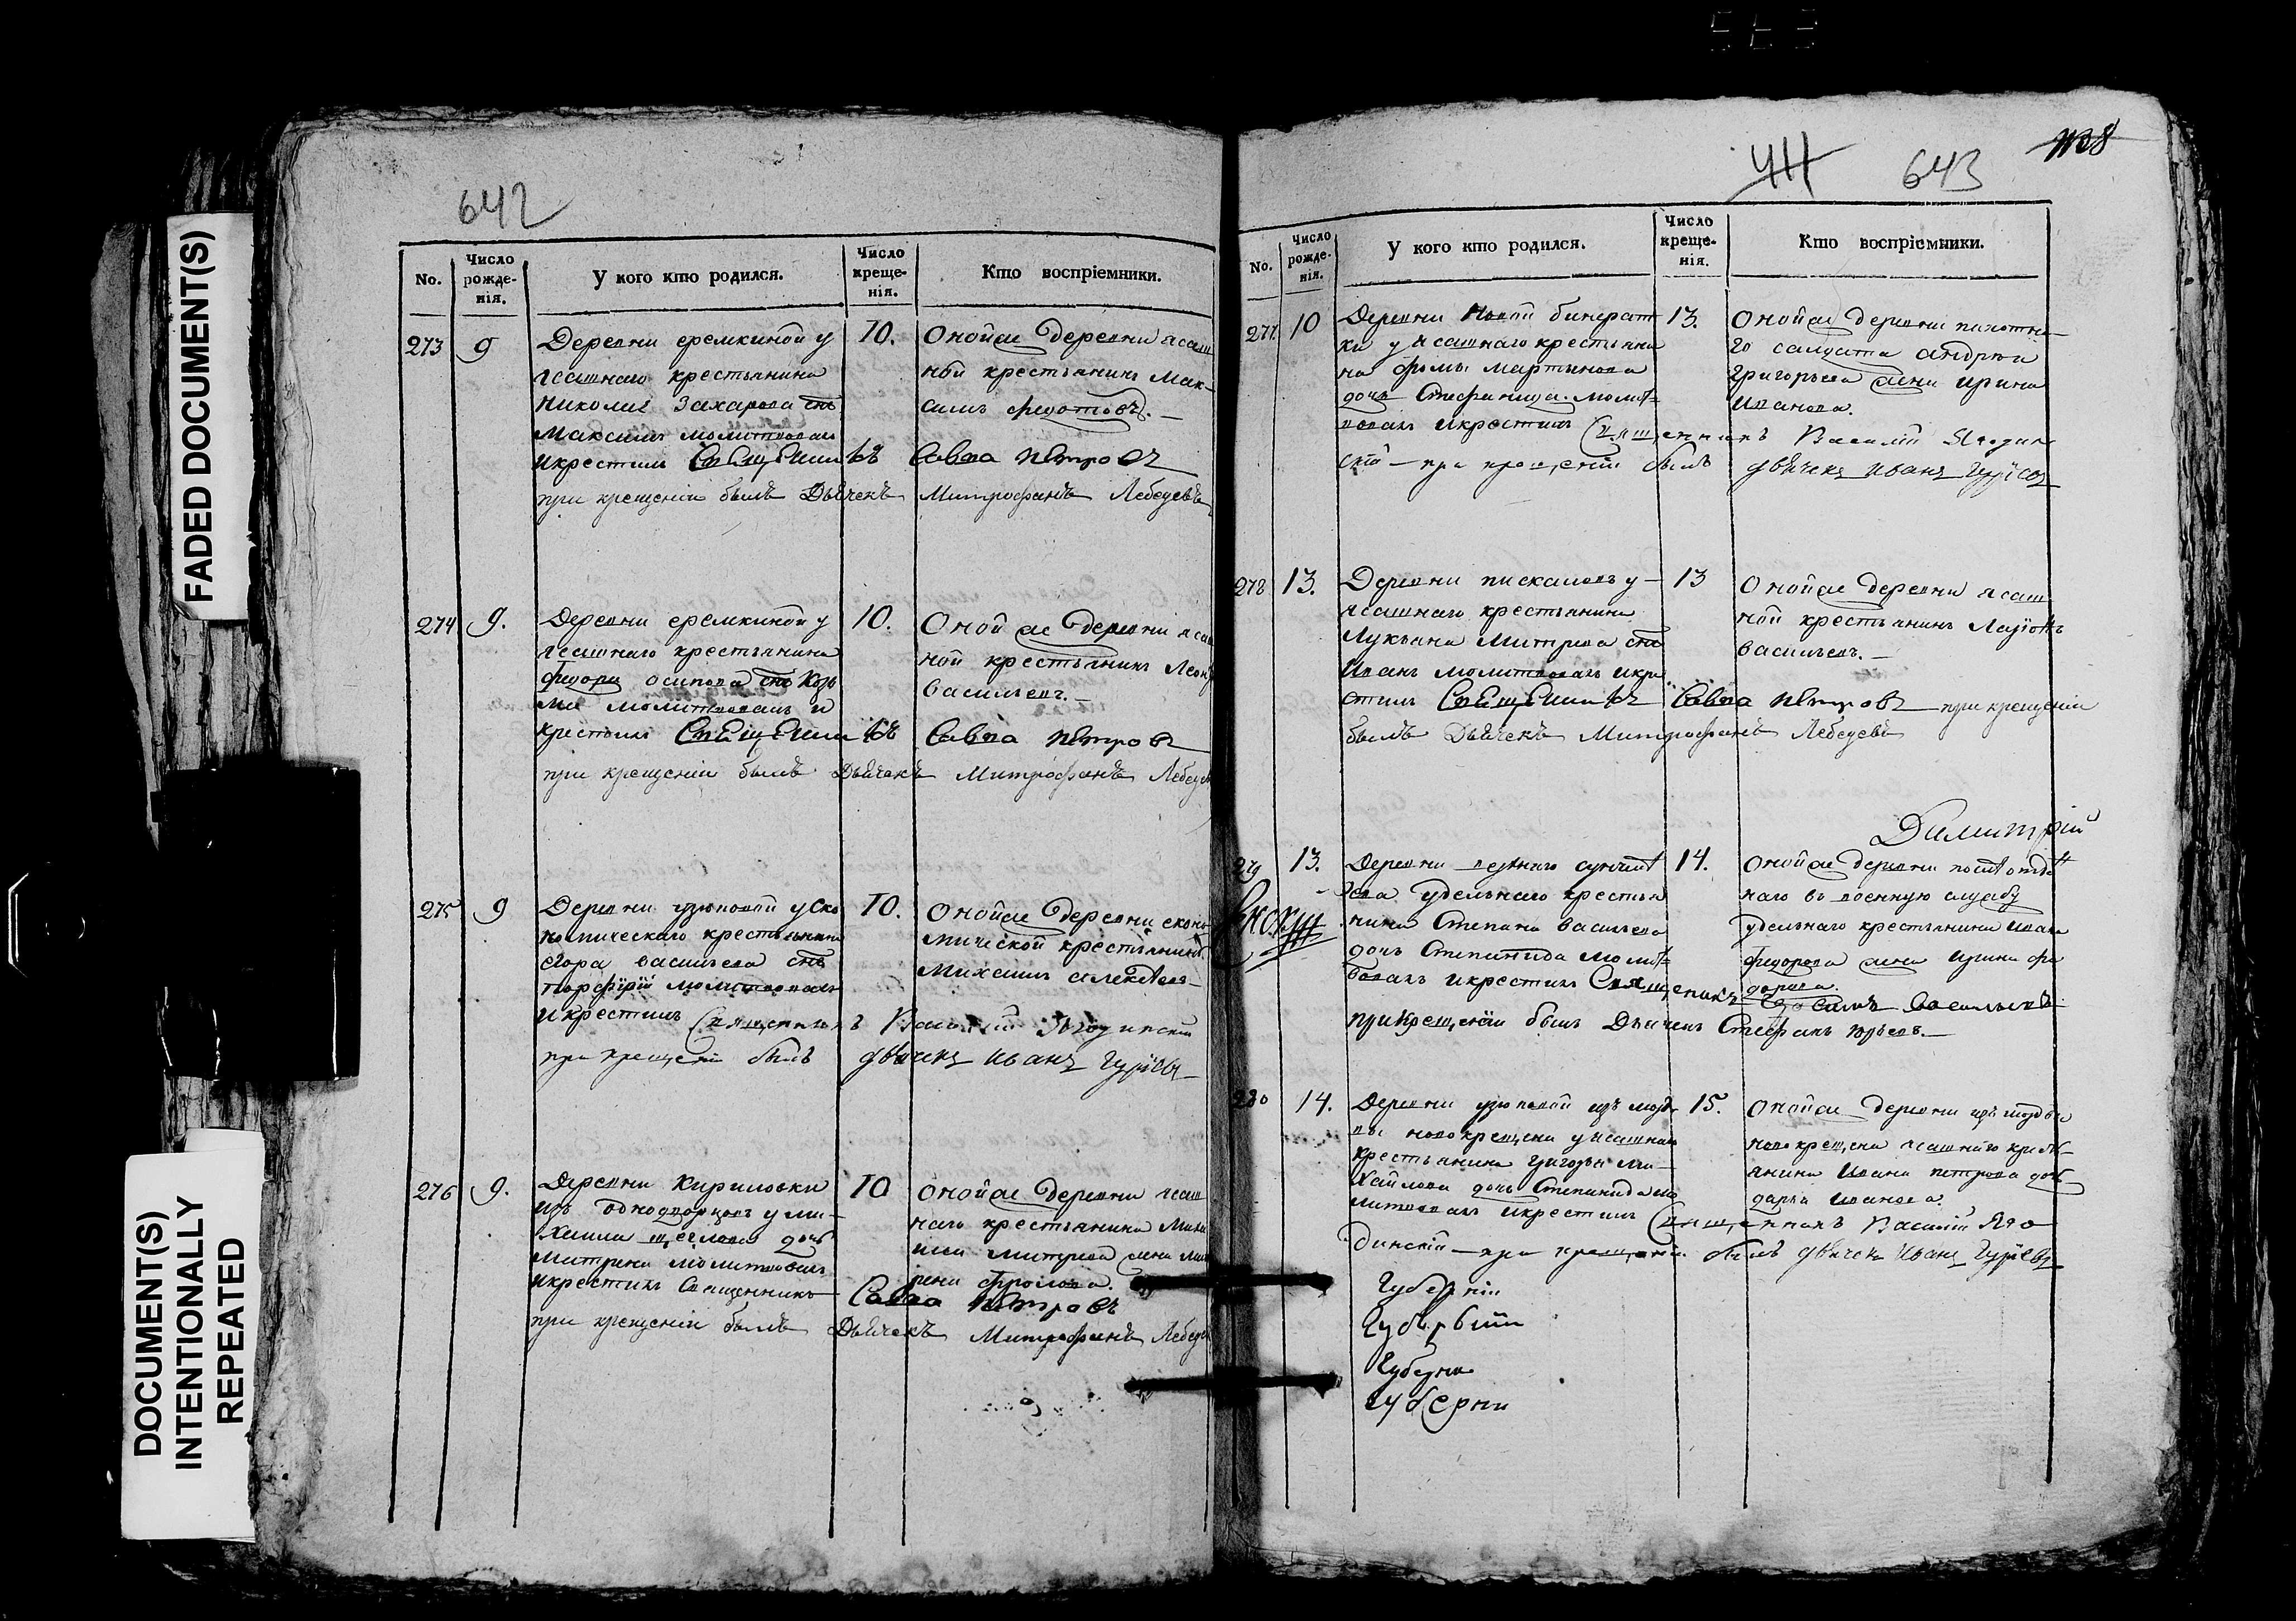 FADED DOCUMENT(S)
DOCUMENT(S)
INTENTIONALLY
REPEATED
642
No.
Число рожде-нія.
У кого кто родился.
Число креще-нія.
Кто воспріемники.
273
9
Деревни еремкиной у
ясашнаго крестьянина
Николая Захарова снъ
Максимъ молитвовалъ
и крестилъ Священникъ Савва Петровъ
при крещеніи былъ Дьячекъ Митрофанъ Лебедевъ
10.
Оной же деревни ясаш
ной крестьянинъ Мак-
симъ Федотовъ.
274
9.
Деревни еремкиной у
ясашнаго крестьянина
Федора осипова снъ Козь
ма молитвовалъ и
крестилъ Священникъ Савва Петровъ
при крещеніи былъ Дьячекъ Митрофанъ
10.
Оной же деревни
ной крестьянинъ
васильевъ.
275
9
Деревни узюковой у Эко
номическаго крестьянина
егора васильева снъ
порфирій молитвовалъ
и крестилъ Священникъ Василій Ягодинскій
при крещеніи былъ дьячекъ Иванъ Гурьевъ
10.
Оной же деревни еконо
мической крестьянинъ
Михаилъ
276
9.
Деревни Кириловки
изъ однодворцовъ у ми-
хаила дочь
Матрена молитвовалъ
и крестилъ Священникъ Савва Петровъ
при крещеніи былъ Дьячекъ Митрофанъ
10
Оной же деревни ясаш
наго крестьянина
митрева жена
Фролова.
643
No.
Число рожде-нія.
У кого кто родился.
Число креще-нія.
Кто воспріемники.
277.
10
Деревни Новой бинарат
ки у ясашнаго крестьяни
на фомы мартынова
дочь Стефанида молит=
вовалъ и крестилъ Священникъ Василій Ягодин
скій при крещеніи былъ дьячекъ Иванъ Гурьевъ
13.
Оной же деревни
го салдата андрея
григорьева жена ирина
Иванова.
278
13.
Деревни пискаловъ у
ясашнаго крестьянина
Лукьяна митрева снъ
Иванъ молитвовалъ и кре
стилъ Священникъ Савва Петровъ при крещеніи
былъ Дьячекъ Митрофанъ Лебедевъ
13
Оной же деревни ясаш
ной крестьянинъ
васильевъ.
Димитрій
279
13.
Деревни
удельнаго крестья
нина Степана васильева
дочь Степанида молит=
вовалъ и крестилъ Священникъ васильевъ
при крещеніи былъ Дьячекъ Стефанъ юрьевъ.
14.
Оной же деревни
наго въ военную службу
удельнаго крестьянина ивана
федорова жена ирина фе
дорова.
280
14.
Деревни узюковой изъ морд
вы новокрещена у ясашнаго
крестьянина григорья ми-
хайлова дочь Степанида мо
литвовалъ и крестилъ Священникъ Василій Яго
динскій при крещеніи былъ дьячекъ Иванъ Гурьевъ
15.
Оной же деревни изъ мордвы
новокрещена ясашнаго кресть-
янина Ивана петрова дочь
дарья Иванова.
Губерніи
Губерніи
Губерни
губерни